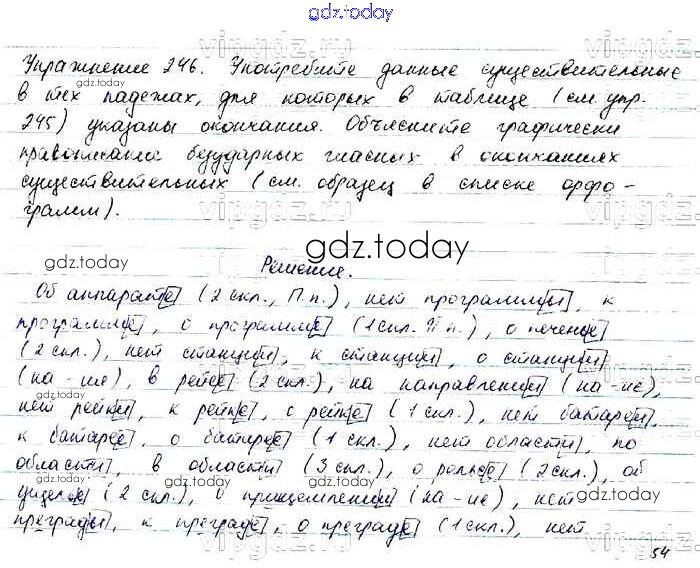 gdz.today
Упражнение 246. Употребите данные существительные
в тех падежах, для которых в таблице (см. упр.
245) указаны окончания. Объясните графически
правописание безударных гласных в окончаниях
существительных (см. образец в списке орфо-
грамм).
gdz.today
Решение.
Об аппарате (2 скл., П.п.), нет программы, к
программе, о программе (1 скл. П.п.), о печенье
(2 скл.), нет станции, к станции, о станции
(на -ия), в рейсе (2 скл.), на направлении (на -ие),
нет рейки, к рейке, о рейке (1 скл.), нет батареи,
к батарее, о батарее (1 скл.), нет области, по
области, в области (3 скл.), о рельсе (2 скл.), об
ущелье (2 скл.), о прищемлении (на -ие), нет
преграды, к преграде, о преграде (1 скл.), нет
54